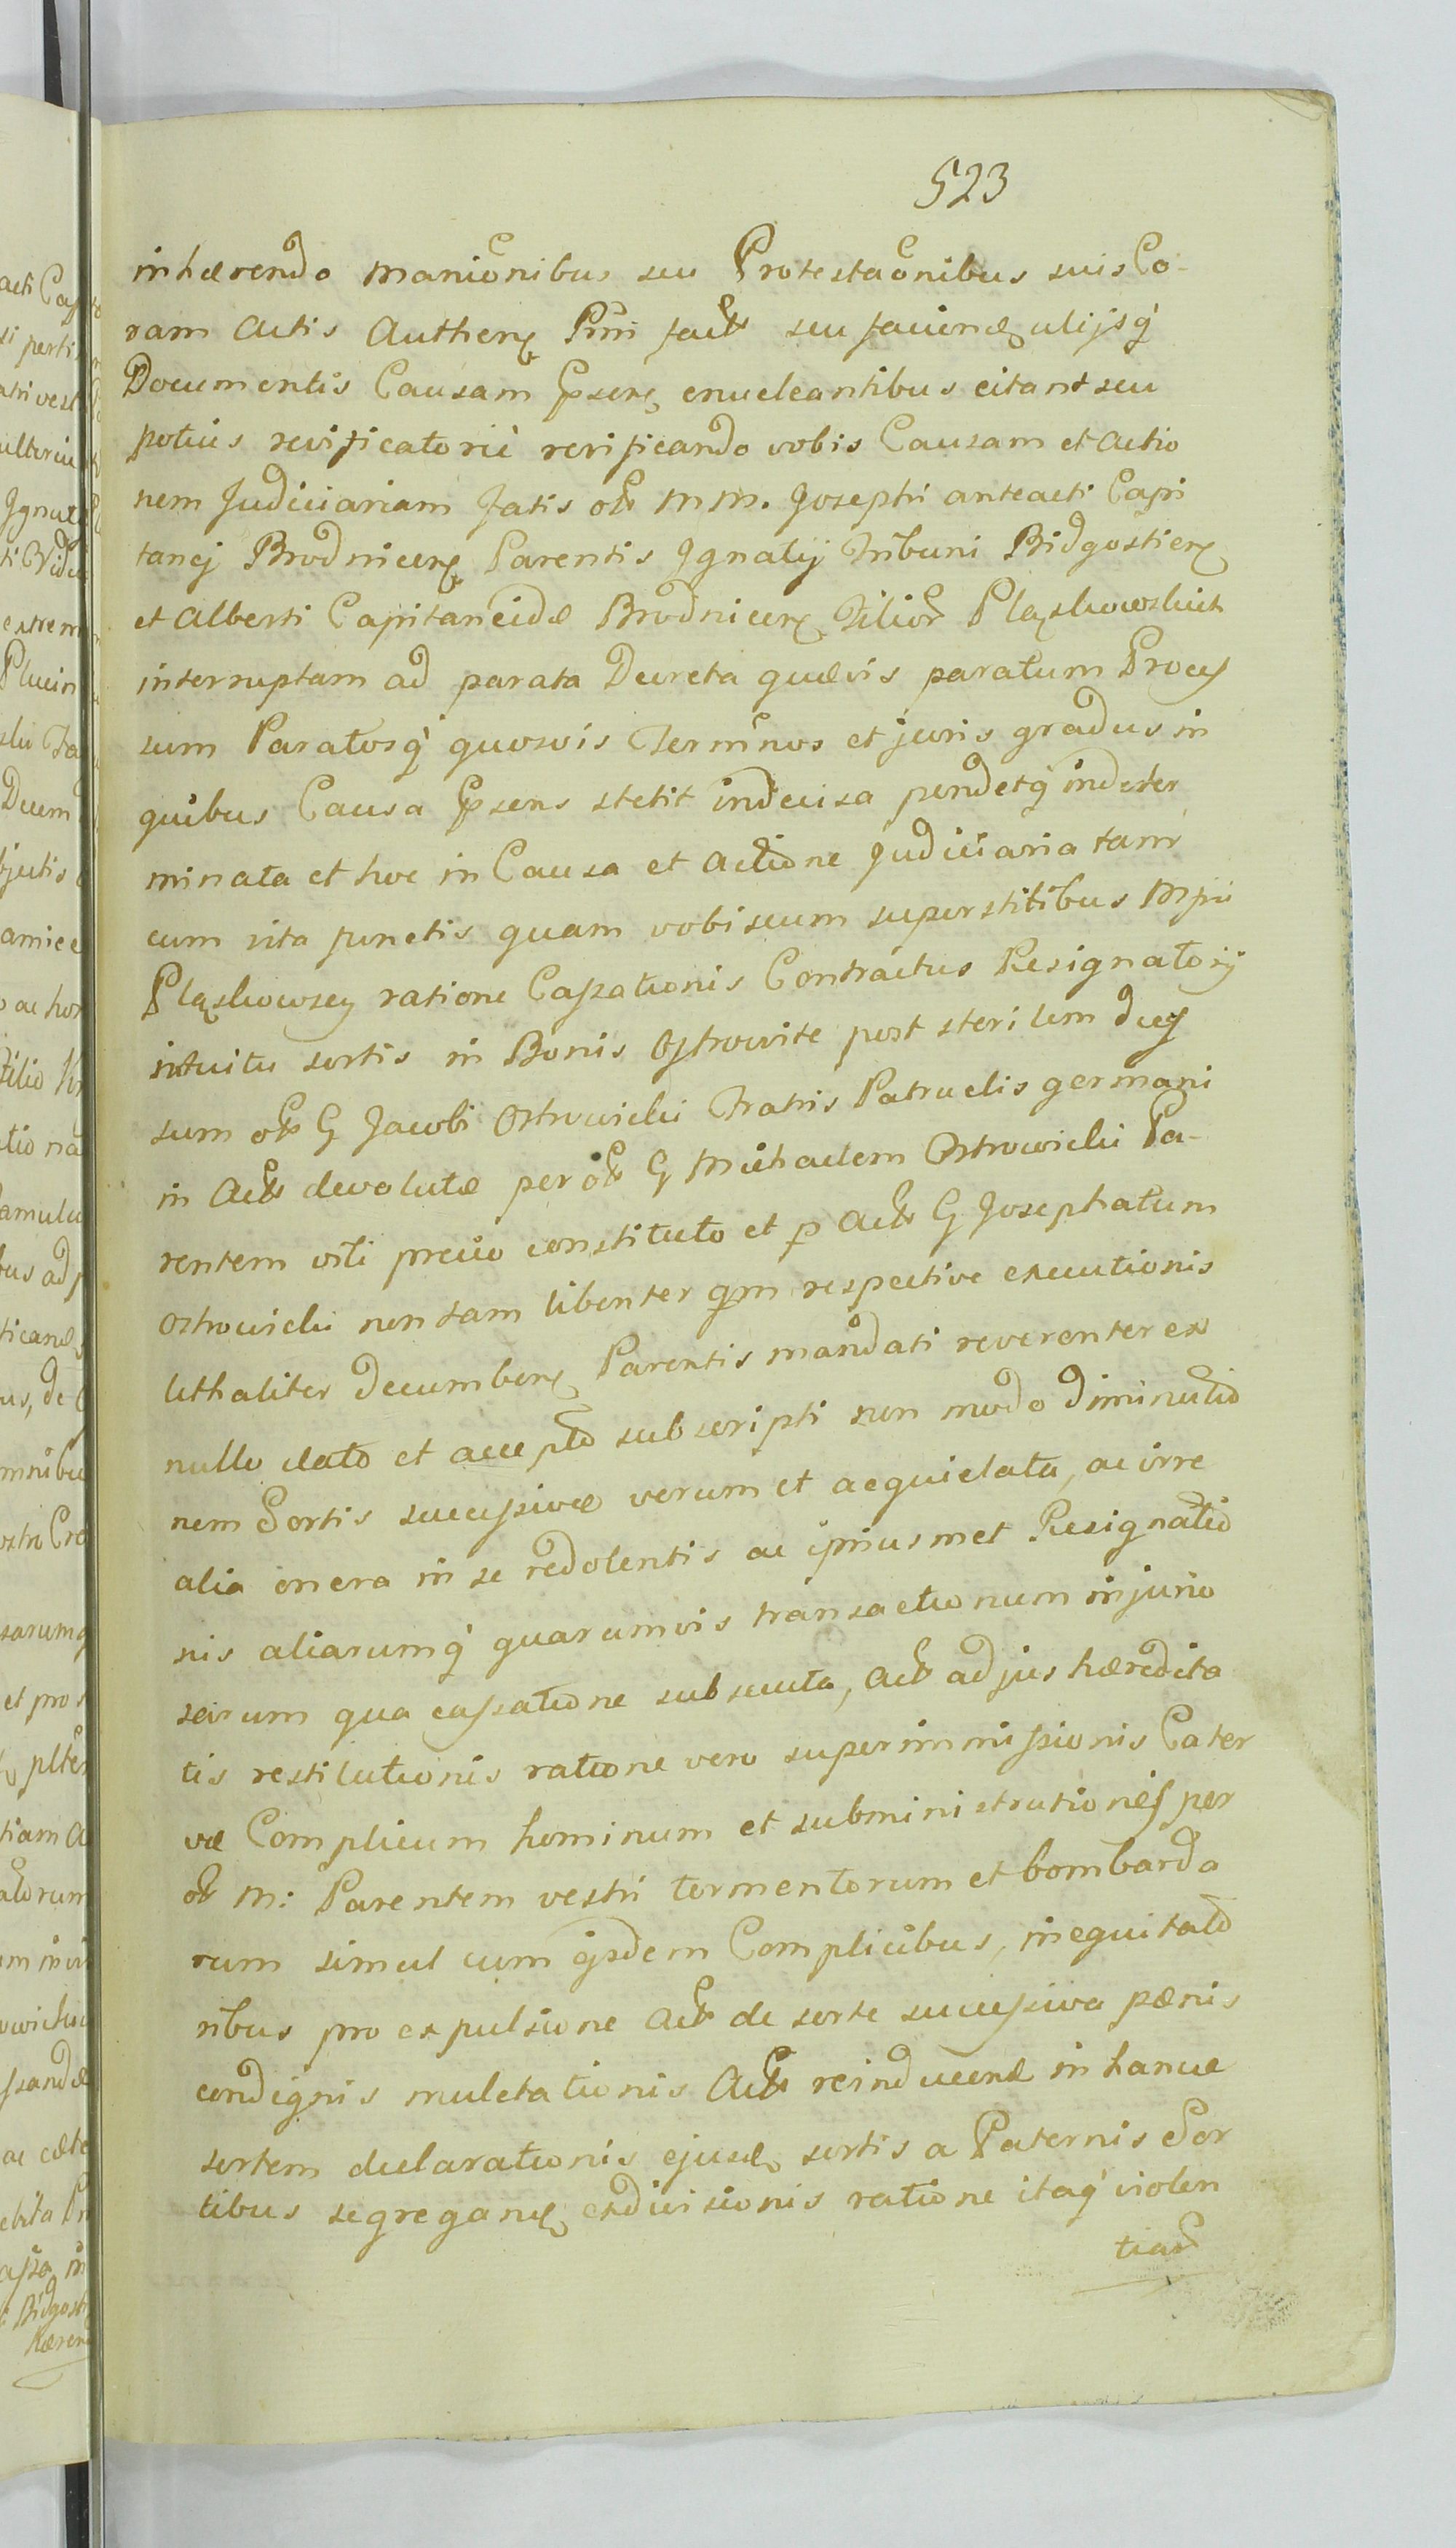 523
inhærendo manicõnibus seu Protestacõnibus suis Co-
ram Actis Authen Pnn fact seu faciend alijsq
Documentis Causam Psen enucleantibus citant seu
potius revificatorie revificando vobis Causam et Actio
nem Judiciariam fatis ol MM. Josephi anteacti Capi
tanej Brodnicen Parentis Ignatij Tribuni Bidgostien
et Alberti Capitaneidæ Brodnicen Filior Pląskowskich
interruptam ad parata Decreta quævis paratum Proces
sum Paratosq quosvis Terminos et juris gradus in
quibus Causa Psens stetit indecisa pendetq indeter
minata et hoc in Causa et Actione Judiciaria tam
cum vita functis quam vobiscum superstitibus Mfii
Pląskowscy ratione Cassationis Contractus Resignatorij
intuitu sortis in Bonis Ostrowite post sterilem deces
sum ol G Jacobi Ostrowicki Fratris Patruelis germani
in Act devolutæ per ol G Michaelem Ostrowicki Pa-
rentem viti precio constituto et p Act G Josephatum
Ostrowicki non tam libenter qm respective executionis
lethaliter decumben Parentis mandati reverenter ex
nullo dato et accepto subscripti non modo diminutio
nem Sortis successivæ verum et acquietata, ac irre
alia onera in se redolentis ac ipsiusmet Resignatio
nis aliarumq quarumvis transactionum injurio
sarum qua cassatione subsecuta, Act ad jus hæredita
tis restitutionis ratione vero superimmissionis Cater
væ Complicum hominum et subministrationis per
ol M: Parentem vestri tormentorum et bombarda
rum simul cum ijsdem Complicibus, inequitato
ribus pro expulsione Act de sorte successiva pænis
condignis mulctationis Act reinducend in hancce
sortem declarationis ejusd sortis a Paternis Sor
tibus segregand exdivisionis ratione itaq violen
tiar